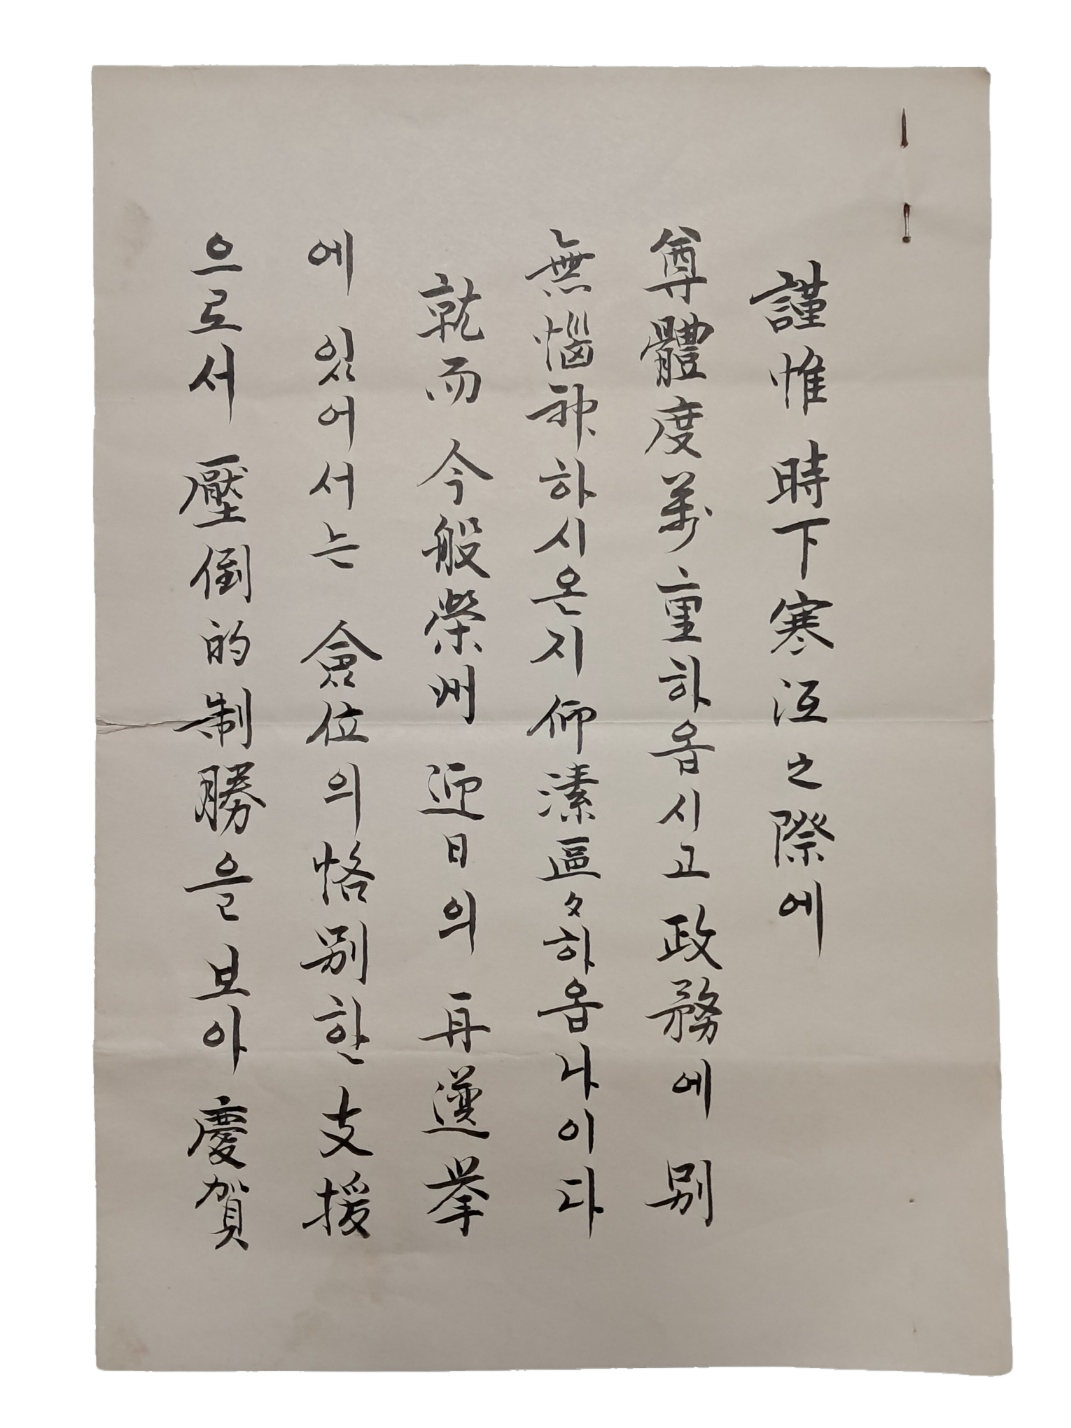 謹惟 時下 寒沍之際에
尊體度萬重하옵시고 政務에 別
無惱神하시온지 仰溸區々하옵나이다
就而 今般榮州 迎日의 再選挙
에 있어서는 僉位의 恪別한 支援
으로서 壓倒的制勝을 보아 慶賀